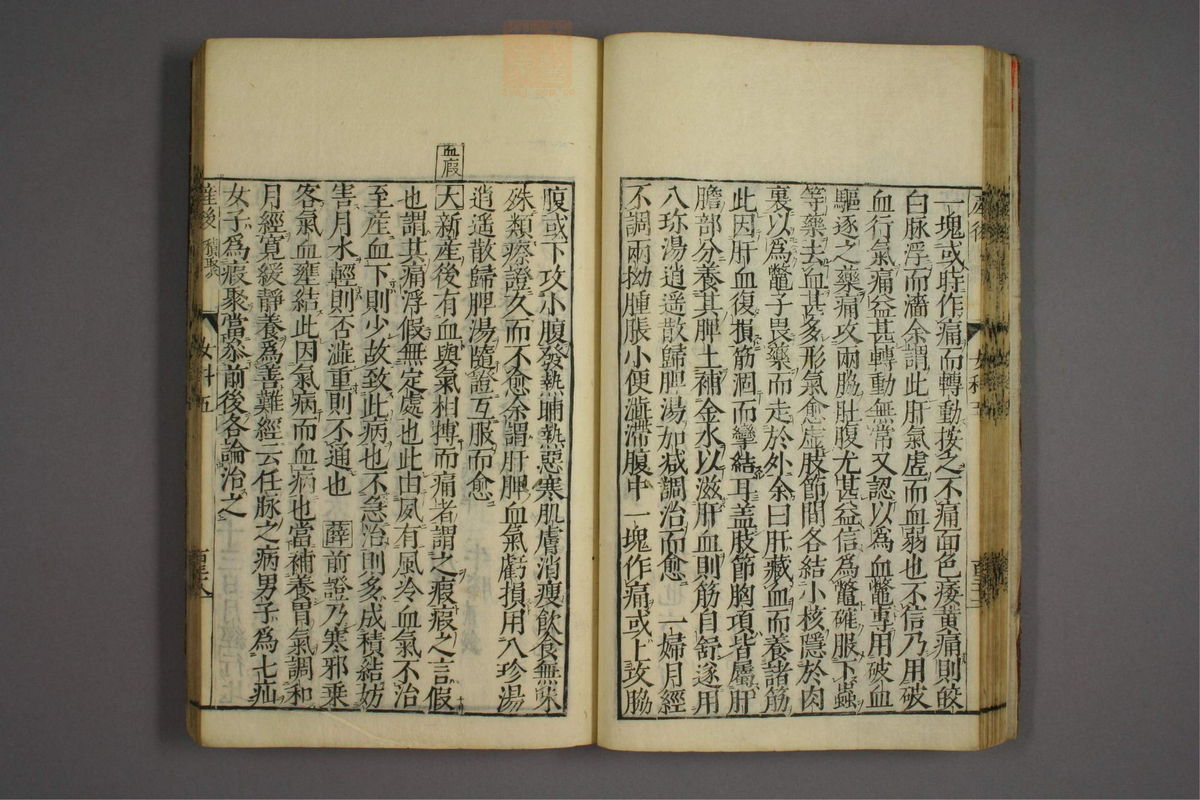 一塊或時作痛而轉動按之不痛面色痿黃痛則㿠
白脉浮而濇余謂此肝氣虛而血弱也不信乃用破
血行氣痛益甚轉動無常又認以爲血鱉專用破血
驅逐之藥痛攻兩脇肚腹尤甚益信爲鱉確服下蟲
等藥去血甚多形氣愈虛肢節間各結小核隱於肉
裏以爲鱉子畏藥而走於外余曰肝藏血而養諸筋
此因肝血復損筋涸而攣結耳盖肢節胸項皆屬肝
膽部分養其脾土補金水以滋肝血則筋自舒遂用
八珎湯逍遥散歸脾湯加减調治而愈 一婦月經
不調兩拗腫脹小便澁滯腹中一塊作痛或上攻脇
腹或下攻小腹發熱晡熱惡寒肌膚消瘦飲食無味
殊類瘵證久而不愈余謂肝脾血氣虧損用八珍湯
逍遥散歸脾湯隨證互服而愈
血瘕
大新產後有血與氣相搏而痛者謂之瘕瘕之言假
也謂其痛浮假無定處也此由夙有風冷血氣不治
至産血下則少故致此病也不急治則多成積結妨
害月水輕則否澁重則不通也 薛前證乃寒邪乗
客氣血壅結此因氣病而血病也當補養胃氣調和
月經寛緩靜養爲善難經云任脉之病男子爲七疝
女子爲瘕聚當叅前後各論治之
產後 積聚 女科五